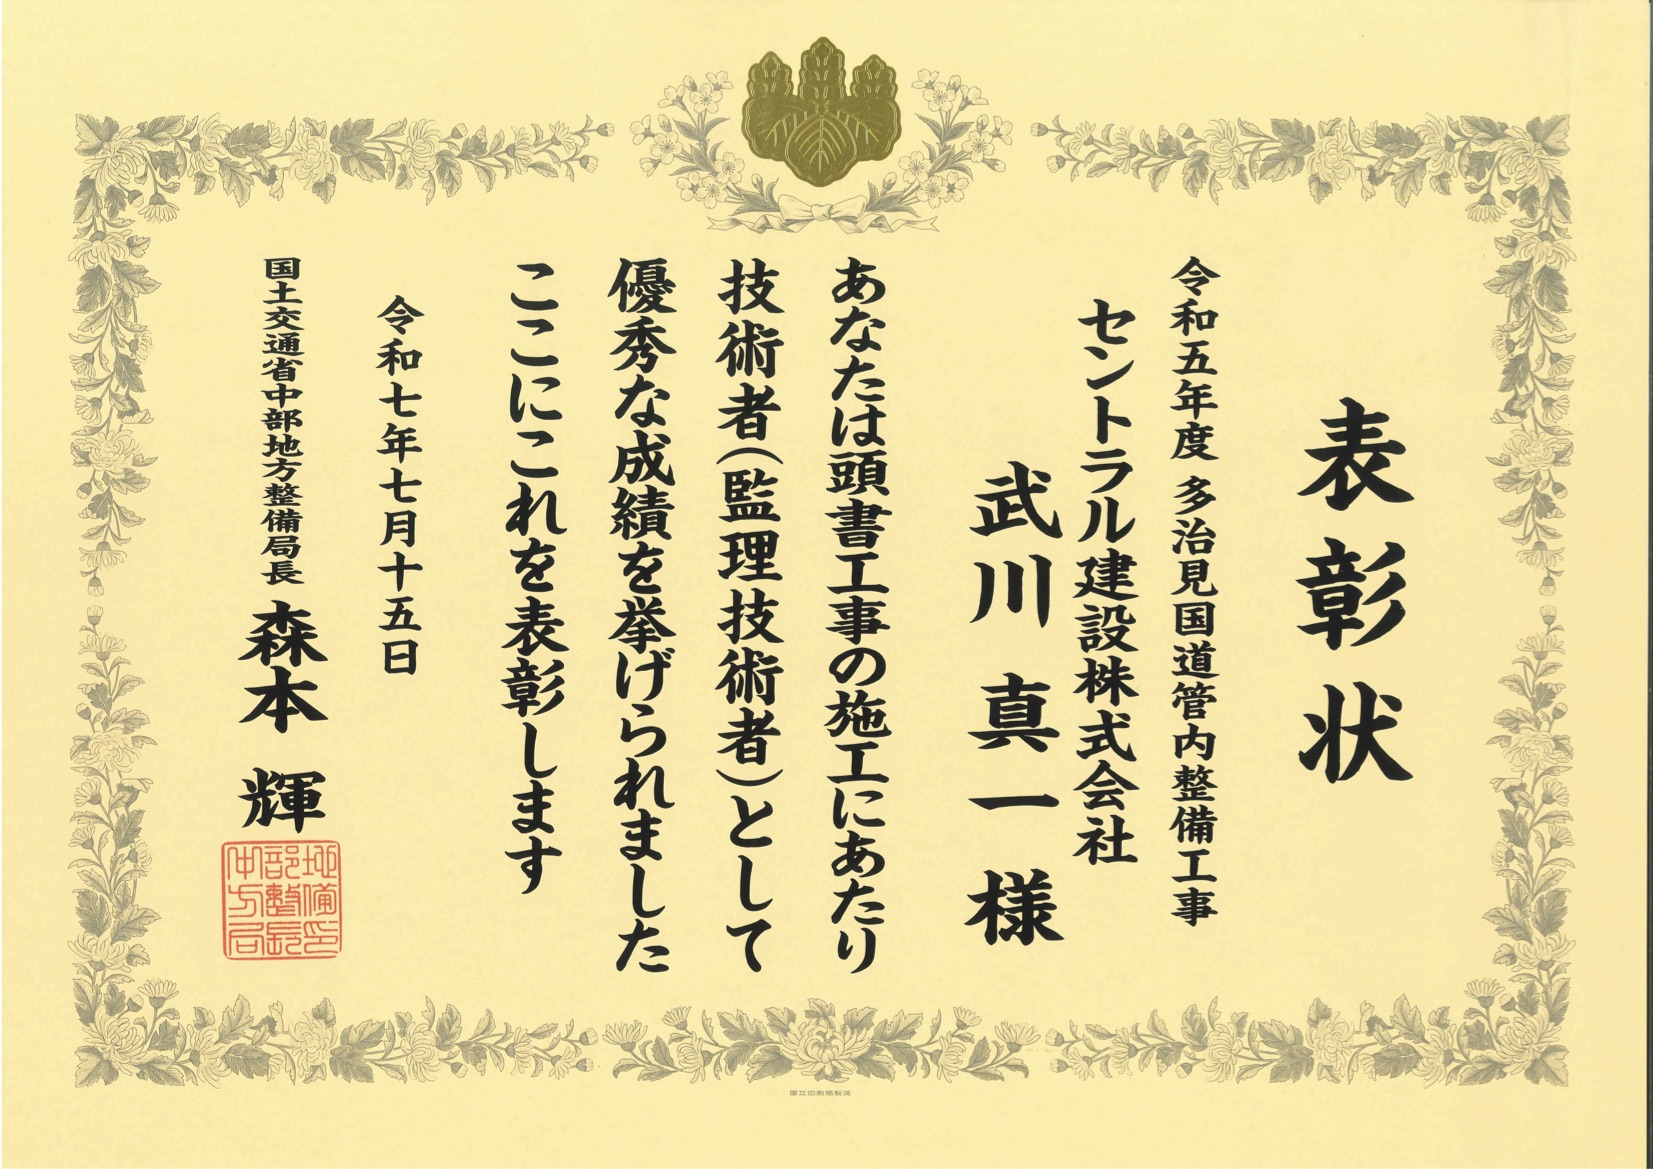 表彰状
令和五年度 多治見国道管内整備工事
セントラル建設株式会社
武川 真一 様
あなたは頭書工事の施工にあたり
技術者(監理技術者)として
優秀な成績を挙げられました
ここにこれを表彰します
令和七年七月十五日
国土交通省中部地方整備局長 森本 輝
中部地
方整備
局長印
国立印刷局製造